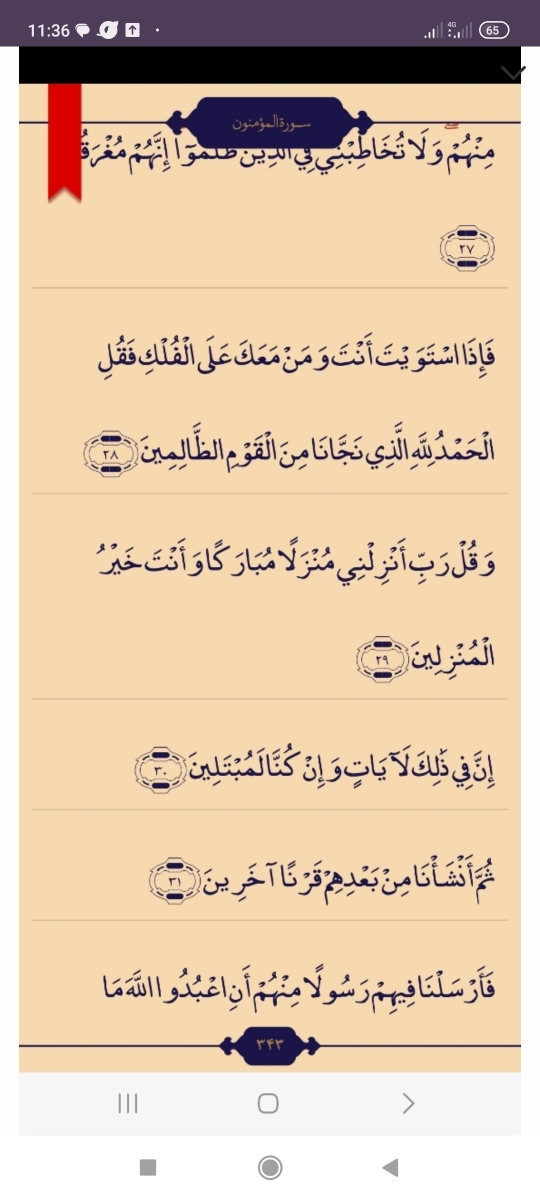 11:36
4G
65
سورة المؤمنون
مِنْهُمْ وَلَا تُخَاطِبْنِي فِي الَّذِينَ ظَلَمُوٓا إِنَّهُمْ مُغْرَقُ
٢٧
فَإِذَا اسْتَوَيْتَ أَنْتَ وَمَنْ مَعَكَ عَلَى الْفُلْكِ فَقُلِ
الْحَمْدُ لِلَّهِ الَّذِي نَجَّانَا مِنَ الْقَوْمِ الظَّالِمِينَ ٢٨
وَقُلْ رَبِّ أَنْزِلْنِي مُنْزَلًا مُبَارَكًا وَأَنْتَ خَيْرُ
الْمُنْزِلِينَ ٢٩
إِنَّ فِي ذَٰلِكَ لَآيَاتٍ وَإِنْ كُنَّا لَمُبْتَلِينَ ٣٠
ثُمَّ أَنْشَأْنَا مِنْ بَعْدِهِمْ قَرْنًا آخَرِينَ ٣١
فَأَرْسَلْنَا فِيهِمْ رَسُولًا مِنْهُمْ أَنِ اعْبُدُوا اللَّهَ مَا
۳۴۳